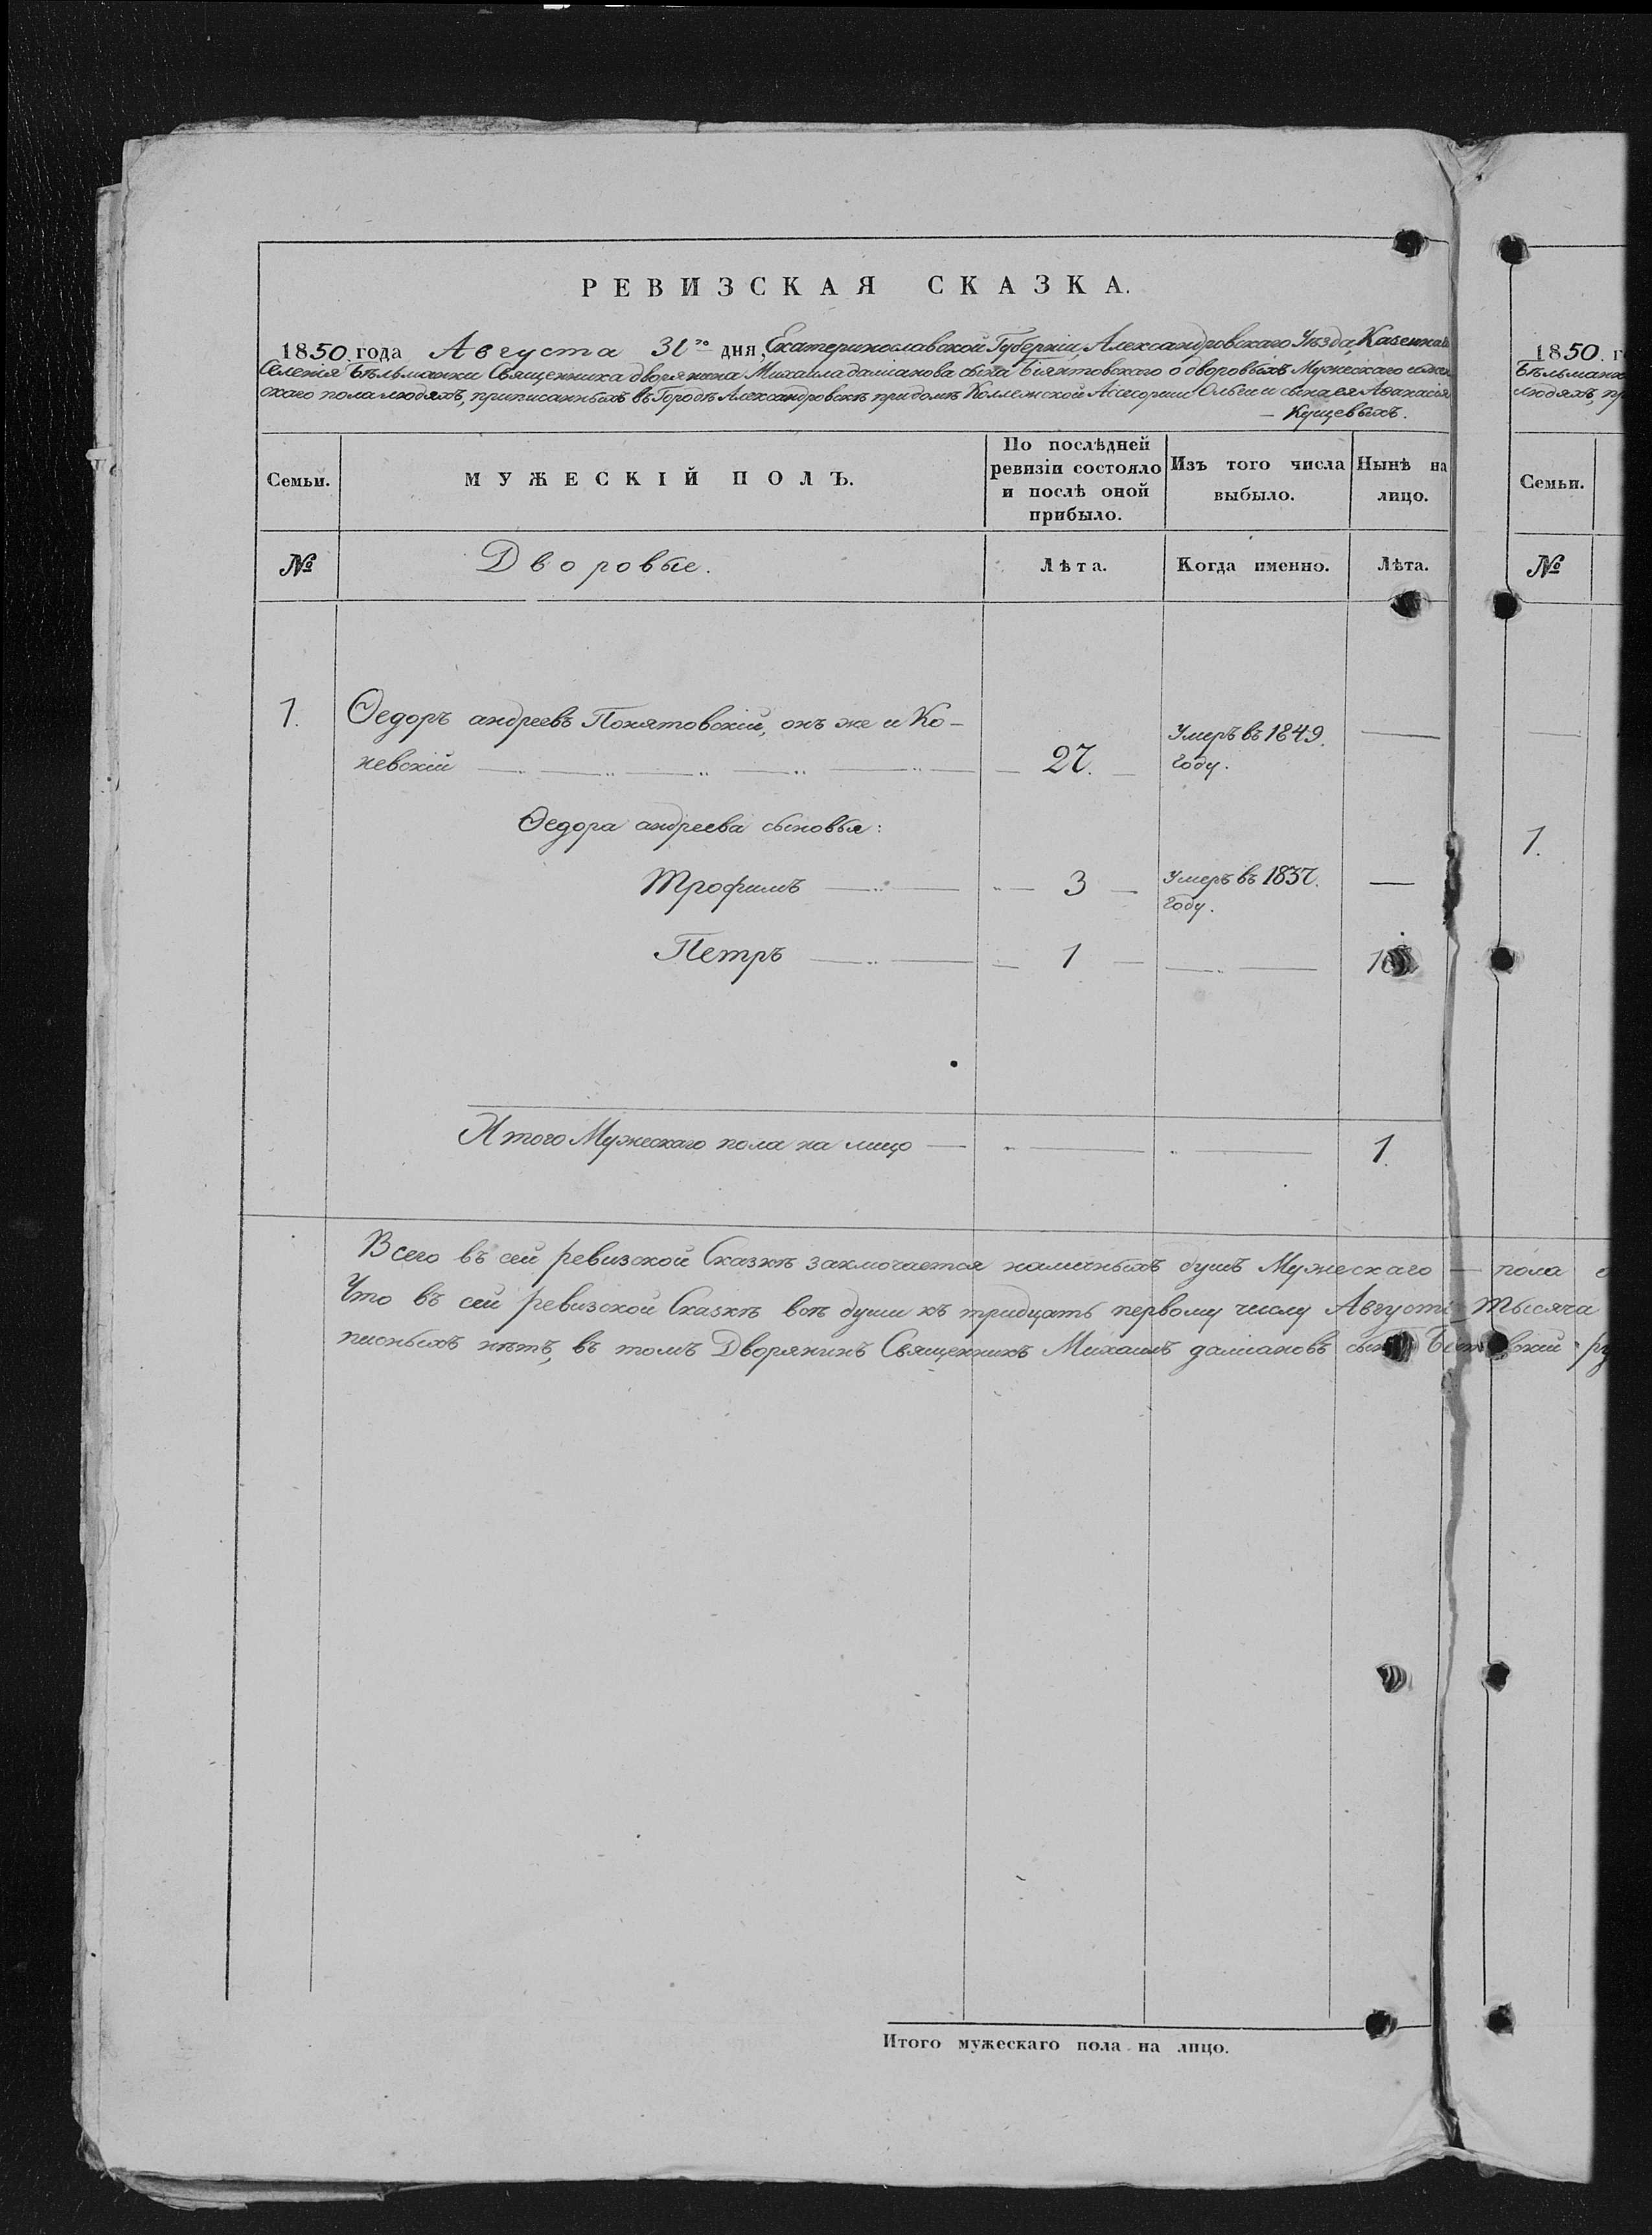 РЕВИЗСКАЯ СКАЗКА.
1850 года Августа 31го дня, Екатеринославской Губерніи, Александровскаго Уѣзда, Казеннаго
Селенія Бѣльманки Священника дворянина Михаила даміанова сына Біянтовскаго о дворовыхъ Мужескаго и жен
скаго пола людяхъ, приписанныхъ въ Городѣ Александровскѣ при домѣ Коллежской Ассесорши Ольги и сына ея Аѳанасія
Кущевыхъ.
Семьи.
МУЖЕСКІЙ ПОЛЪ.
По послѣдней
ревизіи состояло
и послѣ оной
прибыло.
Изъ того числа
выбыло.
Нынѣ на
лицо.
№
Дворовые.
Лѣта.
Когда именно.
Лѣта.
1.
Ѳедоръ андреевъ Понятовскій, онъ же и Ко-
невскій
27.
Умеръ въ 1849.
году.
Ѳедора андреева сыновья:
Трофимъ
3
Умеръ въ 1837.
году.
Петръ
1
Итого Мужескаго пола на лицо
1.
Всего въ сей ревизской Сказкѣ заключается наличныхъ душъ Мужескаго — пола
Что въ сей ревизской Сказкѣ всѣ души къ тридцать первому числу Августа Тысяча
писныхъ нѣтъ, въ томъ Дворянинъ Священникъ Михаилъ даміановъ
Итого мужескаго пола на лицо.
1850. г
Бѣльманк
людяхъ, пр
Семьи.
№
1.